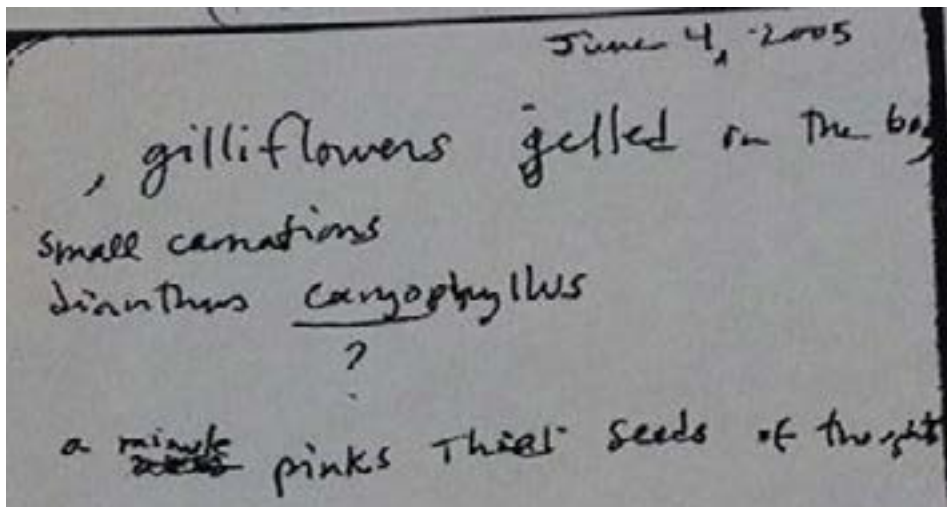 June 4, 2005
, gilliflowers gelled in the
small carnations
dianthus caryophyllus
?
a minute pinks seeds of thought